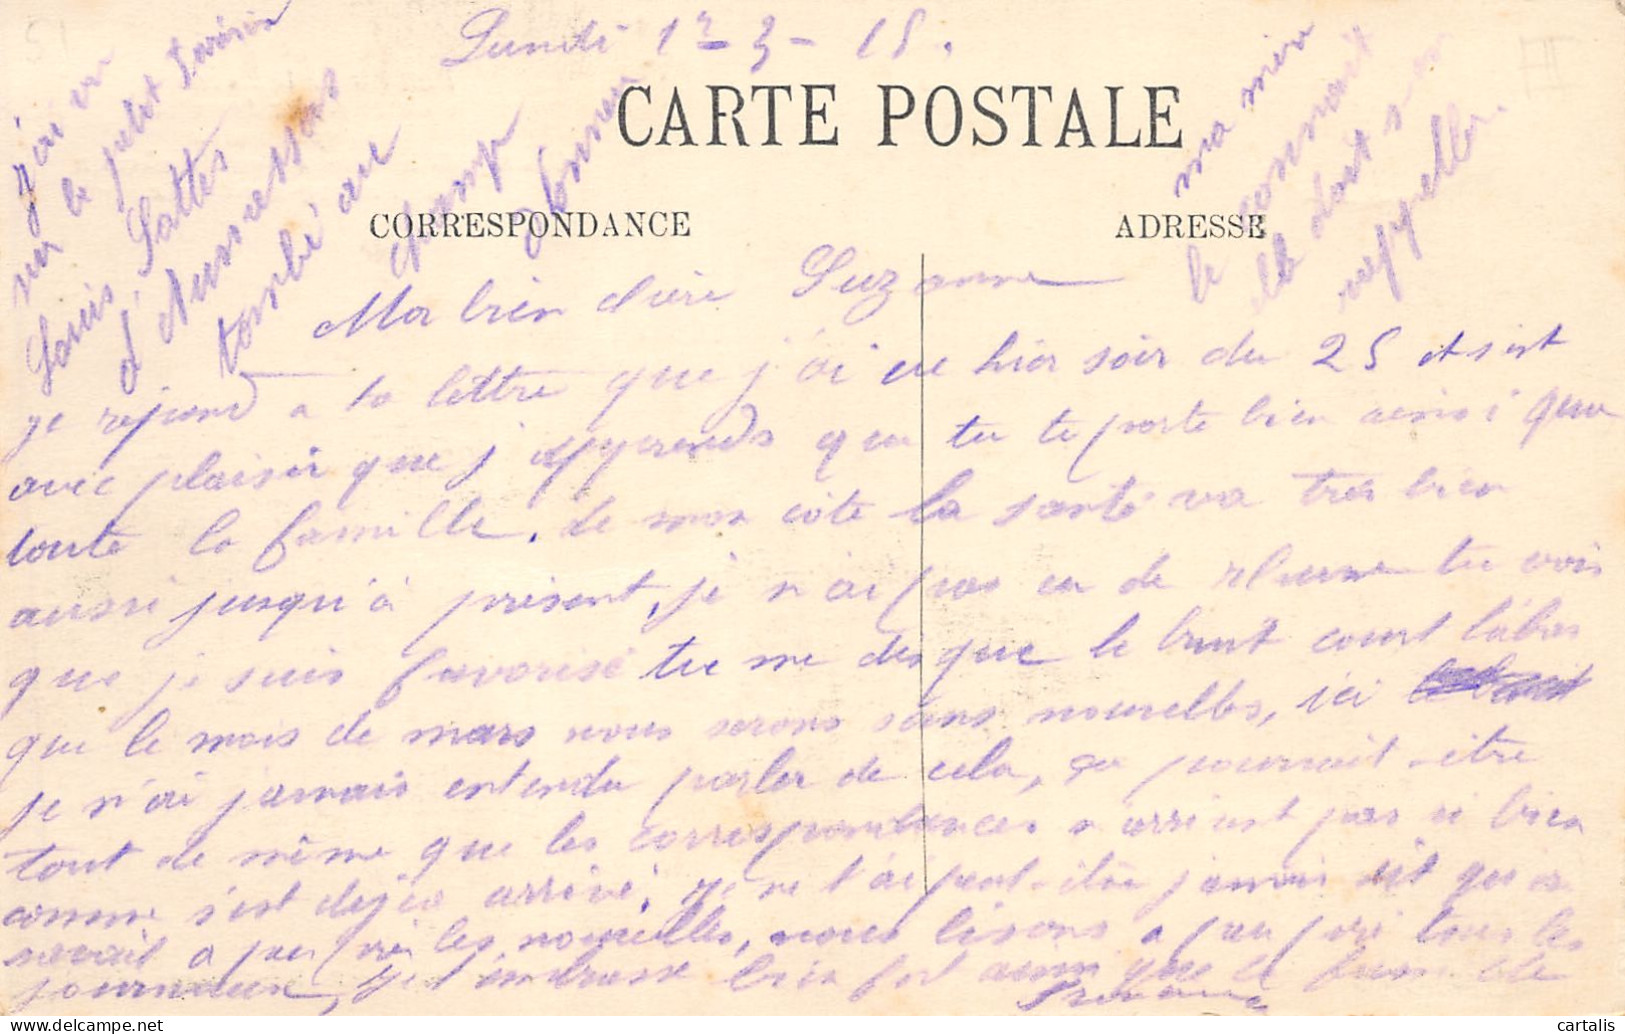 Lundi 1r-3-15.
CARTE POSTALE
CORRESPONDANCE
ADRESSE
Ma bien chère Suzanne
je répond a ta lettre que j'ai eue hier soir du 25 et c'est
avec plaisir que j'apprends que tu te porte bien ainsi que
toute la famille. de mon côte la santé va très bien
aussi jusqu'à présent, je n'ai pas eu de rhume tu vois
que je suis favorisé tu me dis que le bruit court labas
que le mois de mars nous serons sans nouvelles, ici
je n'ai jamais entendu parler de cela, ça pourrait-être
tout de même que les correspondances n'arrivent pas si bien
comme s'est dejea arrivé, je ne t'ai peut-être jamais dit qu'on
savait a peu près les nouvelles, nous lisons a peu près tous les
journeaux, je t'embrasse bien fort ainsi que la famille
j'ai vu
sur le petit
Louis Lattes
d'Aussessas
tombé au
champ
d'honneur
ma mère
le connait
elle doit s'en
rappeller.
cartalis